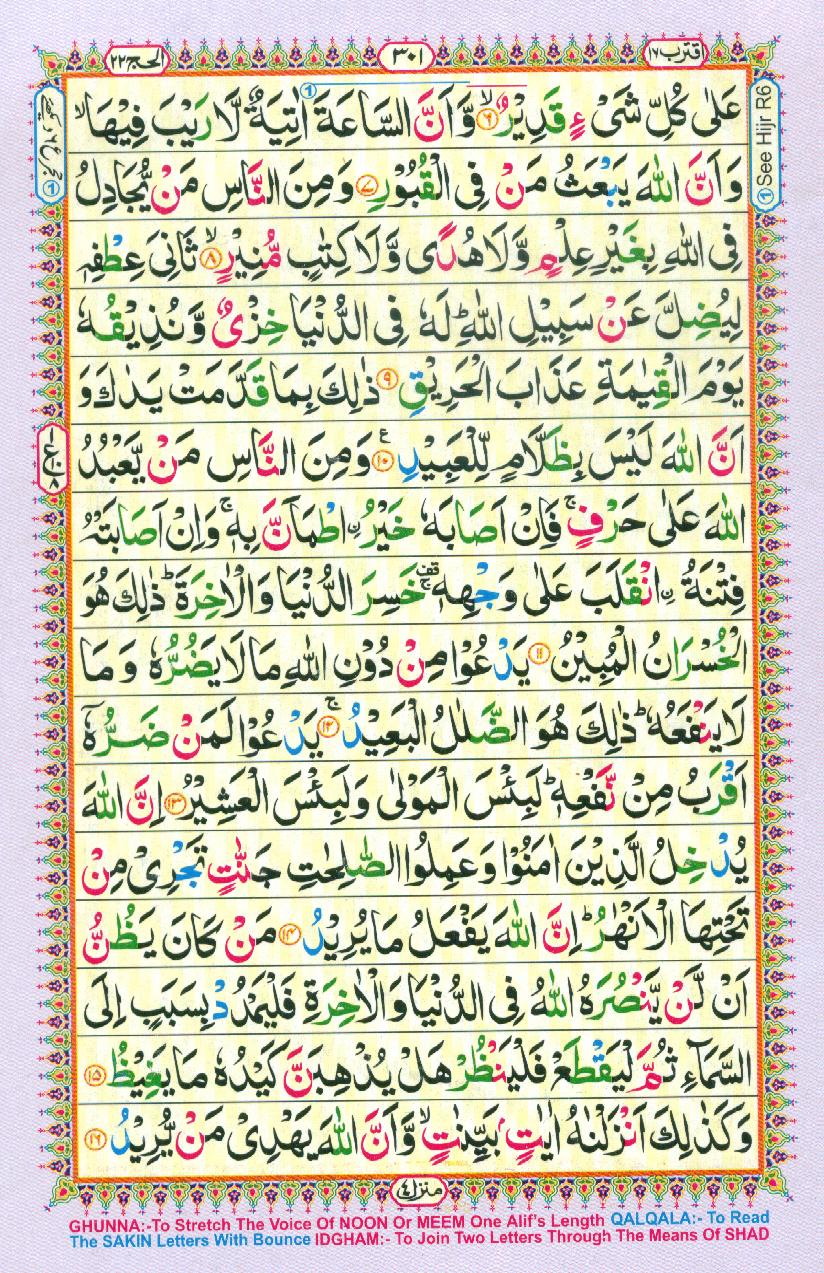 اقترب ١٧
٣٠١
الحج ٢٢
عَلٰى كُلِّ شَىْءٍ قَدِيْرٌ ۙ‏﴿۶﴾ وَّاَنَّ السَّاعَةَ اٰتِيَةٌ لَّا رَيْبَ فِيْهَا ۙ
وَاَنَّ اللّٰهَ يَبْعَثُ مَنْ فِى الْقُبُوْرِ ﴿۷﴾ وَمِنَ النَّاسِ مَنْ يُّجَادِلُ
فِى اللّٰهِ بِغَيْرِ عِلْمٍ وَّلَا هُدًى وَّلَا كِتٰبٍ مُّنِيْرٍ ۙ﴿۸﴾ ثَانِىَ عِطْفِهٖ
لِيُضِلَّ عَنْ سَبِيْلِ اللّٰهِ ؕ لَهٗ فِى الدُّنْيَا خِزْىٌ وَّنُذِيْقُهٗ
يَوْمَ الْقِيٰمَةِ عَذَابَ الْحَرِيْقِ ﴿۹﴾ ذٰلِكَ بِمَا قَدَّمَتْ يَدٰكَ وَ
اَنَّ اللّٰهَ لَيْسَ بِظَلَّامٍ لِّلْعَبِيْدِ ﴿۱۰﴾ ع وَمِنَ النَّاسِ مَنْ يَّعْبُدُ
اللّٰهَ عَلٰى حَرْفٍ ۚ فَاِنْ اَصَابَهٗ خَيْرُ ۨاطْمَاَنَّ بِهٖ ۚ وَاِنْ اَصَابَتْهُ
فِتْنَةُ ۨانْقَلَبَ عَلٰى وَجْهِهٖ ۚقف خَسِرَ الدُّنْيَا وَالْاٰخِرَةَ ؕ ذٰلِكَ هُوَ
الْخُسْرَانُ الْمُبِيْنُ ﴿۱۱﴾ يَدْعُوْا مِنْ دُوْنِ اللّٰهِ مَا لَا يَضُرُّهٗ وَمَا
لَا يَنْفَعُهٗ ؕ ذٰلِكَ هُوَ الضَّلٰلُ الْبَعِيْدُ ۚ﴿۱۲﴾ يَدْعُوْا لَمَنْ ضَرُّهٗۤ
اَقْرَبُ مِنْ نَّفْعِهٖ ؕ لَبِئْسَ الْمَوْلٰى وَلَبِئْسَ الْعَشِيْرُ ﴿۱۳﴾ اِنَّ اللّٰهَ
يُدْخِلُ الَّذِيْنَ اٰمَنُوْا وَعَمِلُوا الصّٰلِحٰتِ جَنّٰتٍ تَجْرِىْ مِنْ
تَحْتِهَا الْاَنْهٰرُ ؕ اِنَّ اللّٰهَ يَفْعَلُ مَا يُرِيْدُ ﴿۱۴﴾ مَنْ كَانَ يَظُنُّ
اَنْ لَّنْ يَّنْصُرَهُ اللّٰهُ فِى الدُّنْيَا وَالْاٰخِرَةِ فَلْيَمْدُدْ بِسَبَبٍ اِلَى
السَّمَآءِ ثُمَّ لْيَقْطَعْ فَلْيَنْظُرْ هَلْ يُذْهِبَنَّ كَيْدُهٗ مَا يَغِيْظُ ﴿۱۵﴾
وَكَذٰلِكَ اَنْزَلْنٰهُ اٰيٰتٍۭ بَيِّنٰتٍ ۙ وَّاَنَّ اللّٰهَ يَهْدِىْ مَنْ يُّرِيْدُ ﴿۱۶﴾
① See Hijr R6
منزل ٤
GHUNNA:-To Stretch The Voice Of NOON Or MEEM One Alif's Length QALQALA:- To Read
The SAKIN Letters With Bounce IDGHAM:- To Join Two Letters Through The Means Of SHAD